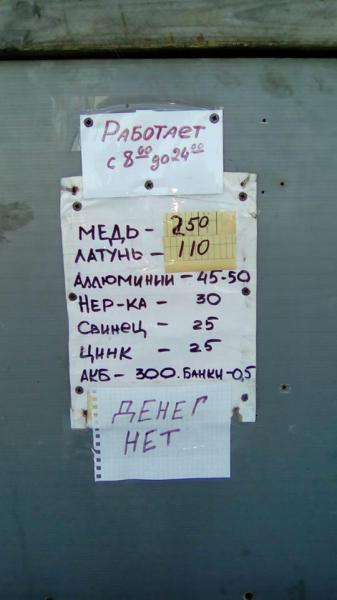 РАБОТАЕТ
с 8⁰⁰ до 24⁰⁰
МЕДЬ - 250
ЛАТУНЬ - 110
АЛЛЮМИНИИ - 45-50
НЕР-КА - 30
СВИНЕЦ - 25
ЦИНК - 25
АКБ - 300. БАНКИ-0,5
ДЕНЕГ
НЕТ